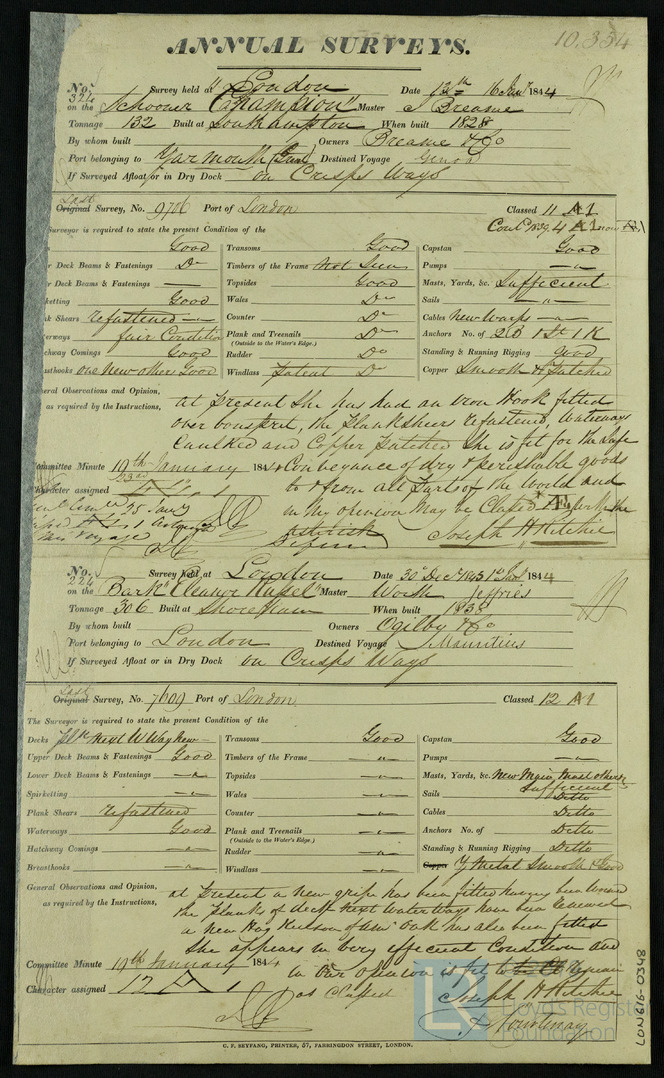 10.354
ANNUAL SURVEYS.
No. 324 Survey held at London Date 12th 16 Jany 1844
on the Schooner "Champion" Master J Breame
Tonnage 132 Built at Southampton When built 1828
By whom built Owners Breame & Co
Port belonging to Yarmouth Destined Voyage Genoa
If Surveyed Afloat or in Dry Dock on Crisps Ways
Last Original Survey, No. 9706 Port of London Classed 11 A1
Contd 1839 4 A1 now
Surveyor is required to state the present Condition of the
Good Transoms Good Capstan Good
r Deck Beams & Fastenings Do Timbers of the Frame Not Seen Pumps —"—
r Deck Beams & Fastenings — Topsides Good Masts, Yards, &c. Sufficient
ketting Good Wales Do Sails —"—
k Shears refastened Counter Do Cables New Warps
erways fair Condition Plank and Treenails Do Anchors No. of 2B 1St 1K
(Outside to the Water's Edge.)
chway Comings Good Rudder Do Standing & Running Rigging good
asthooks one new other Good Windlass Patent Do Copper Smooth & Patched
eral Observations and Opinion, at Present She has had an Iron Hook fitted
as required by the Instructions, over bowsprit, the Planksheers refastened, Waterways
Caulked and Copper patched She is fit for the Safe
ommittee Minute 19th January 1844 Conveyance of dry & perishable goods
23rd
Character assigned to & from all Parts of the World and
in My opinion May be Classed Æ per the
Voyage asterisk Joseph H Ritchie
No. 224 Survey held at London Date 30th Decr 1843 1st Jany 1844
on the Bark "Eleanor Russel" Master Worth Jeffries
Tonnage 306 Built at Shoreham When built 1838
By whom built Owners Ogilby & Co
Port belonging to London Destined Voyage Mauritius
If Surveyed Afloat or in Dry Dock on Crisps Ways
Last Original Survey, No. 7609 Port of London Classed 12 A1
The Surveyor is required to state the present Condition of the
Decks Next W Way New Transoms Good Capstan Good
Upper Deck Beams & Fastenings Good Timbers of the Frame —"— Pumps —"—
Lower Deck Beams & Fastenings —"— Topsides —"— Masts, Yards, &c. New Main Mast others
Sufficient
Spirketting —"— Wales —"— Sails Ditto
Plank Shears refastened Counter —"— Cables Ditto
Waterways Good Plank and Treenails —"— Anchors No. of Ditto
(Outside to the Water's Edge.)
Hatchway Comings —"— Rudder —"— Standing & Running Rigging Ditto
Breasthooks —"— Windlass —"— Copper Y Metal Smooth & Good
General Observations and Opinion, at Present a new gripe has been fitted having been
as required by the Instructions, the Planks of deck Next Waterways have been renewed
a new Hog Keelson of Am. Oak has also been fitted
She appears in very efficient Condition and
Committee Minute 19th January 1844 in Our Opinion is fit to remain
Character assigned 12 A 1 as Classed Joseph H Ritchie
Courtenay
Lloyd's Register Foundation
LON616-0348
C. F. SEYFANG, PRINTER, 57, FARRINGDON STREET, LONDON.